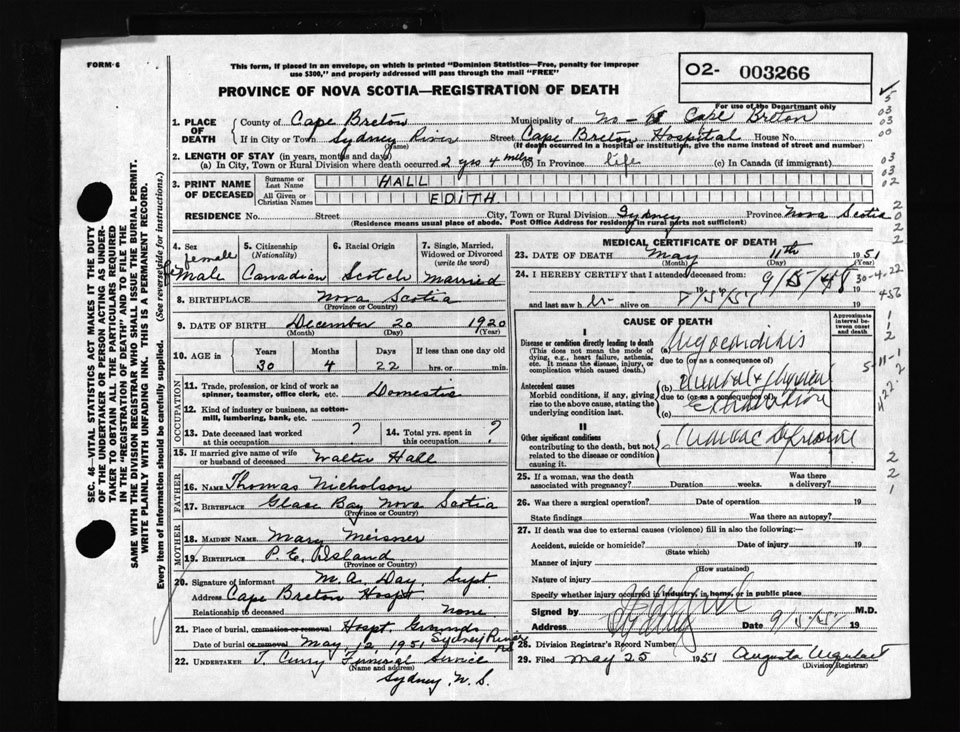 FORM-6
This form, if placed in an envelope, on which is printed "Dominion Statistics—Free, penalty for improper
use $300," and properly addressed will pass through the mail "FREE"
PROVINCE OF NOVA SCOTIA—REGISTRATION OF DEATH
O2- 003266
For use of the Department only
1. PLACE OF DEATH
County of Cape Breton Municipality of Cape Breton
If in City or Town Sydney River Street Cape Breton Hospital House No.
(Name) (If death occurred in a hospital or institution, give the name instead of street and number)
2. LENGTH OF STAY (in years, months and days)
(a) In City, Town or Rural Division where death occurred 2 yrs 4 mths (b) In Province life (c) In Canada (if immigrant)
3. PRINT NAME OF DECEASED
Surname or Last Name HALL
All Given or Christian Names EDITH
RESIDENCE No. Street City, Town or Rural Division Sydney Province Nova Scotia
(Residence means usual place of abode. Post Office Address for residents in rural parts not sufficient)
4. Sex female Male
5. Citizenship (Nationality) Canadian
6. Racial Origin Scotch
7. Single, Married, Widowed or Divorced (write the word) Married
8. BIRTHPLACE Nova Scotia
(Province or Country)
9. DATE OF BIRTH December 20 1920
(Month) (Day) (Year)
10. AGE in Years Months Days If less than one day old
30 4 22 hrs. or min.
OCCUPATION
11. Trade, profession, or kind of work as spinner, teamster, office clerk, etc. Domestic
12. Kind of industry or business, as cotton-mill, lumbering, bank, etc.
13. Date deceased last worked at this occupation ?
14. Total yrs. spent in this occupation ?
15. If married give name of wife or husband of deceased Walter Hall
FATHER
16. NAME Thomas Nicholson
17. BIRTHPLACE Glace Bay Nova Scotia
(Province or Country)
MOTHER
18. MAIDEN NAME Mary Meisner
19. BIRTHPLACE P. E. Island
(Province or Country)
20. Signature of informant M. A. Day, Supt.
Address Cape Breton Hospt
Relationship to deceased None
21. Place of burial, cremation or removal Hospt. Grounds
Sydney River
Date of burial or removal May 12, 1951
22. UNDERTAKER T. Curry Funeral Service
(Name and address)
Sydney N. S.
MEDICAL CERTIFICATE OF DEATH
23. DATE OF DEATH May 11th 1951
(Month) (Day) (Year)
24. I HEREBY CERTIFY that I attended deceased from 9/5/48
19 19
and last saw h er alive on 19
CAUSE OF DEATH
Approximate interval between onset and death
I
Disease or condition directly leading to death
(This does not mean the mode of dying, e.g., heart failure, asthenia, etc. It means the disease, injury, or complication which caused death.)
(a) Myocarditis
due to (or as a consequence of)
Antecedent causes
Morbid conditions, if any, giving rise to the above cause, stating the underlying condition last.
(b) Mental & Physical
due to (or as a consequence of)
Exhaustion
(c)
II
Other significant conditions
contributing to the death, but not related to the disease or condition causing it.
Manic Depressive
25. If a woman, was the death associated with pregnancy? Duration weeks. Was there a delivery?
26. Was there a surgical operation? Date of operation 19
State findings Was there an autopsy?
27. If death was due to external causes (violence) fill in also the following:—
Accident, suicide or homicide? Date of injury 19
(State which)
Manner of injury
(How sustained)
Nature of injury
Specify whether injury occurred in industry, in home, or in public place
Signed by M.D.
Address Date 9/5/51 19
28. Division Registrar's Record Number
29. Filed May 25 1951 Augusta Urquhart
(Division Registrar)
SEC. 46—VITAL STATISTICS ACT MAKES IT THE DUTY
OF THE UNDERTAKER OR PERSON ACTING AS UNDER-
TAKER TO OBTAIN ALL THE PARTICULARS REQUIRED
IN THE "REGISTRATION OF DEATH" AND TO FILE THE
SAME WITH THE DIVISION REGISTRAR WHO SHALL ISSUE THE BURIAL PERMIT.
WRITE PLAINLY WITH UNFADING INK. THIS IS A PERMANENT RECORD.
Every item of information should be carefully supplied. (See reverse side for instructions.)
5
03
03
00
03
03
02
2
0
2
2
30-4-22
456
1
1
2
5-11-1
422.2
2
2
1